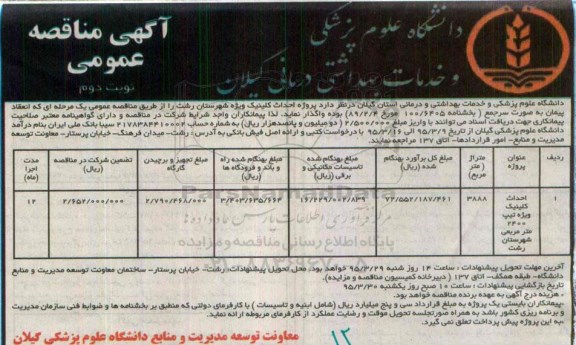 دانشگاه علوم پزشکی
و خدمات بهداشتی درمانی گیلان
آگهی مناقصه
عمومی
نوبت دوم
دانشگاه علوم پزشکی و خدمات بهداشتی و درمانی استان گیلان درنظر دارد پروژه احداث کلینیک ویژه شهرستان رشت را از طریق مناقصه عمومی یک مرحله ای که انعقاد
پیمان به صورت سرجمع ( بخشنامه ۱۰۰/۶۴۰۵ مورخ ۸۹/۲/۴) بوده واگذار نماید. لذا پیمانکاران واجد شرایط شرکت در مناقصه و دارای گواهینامه معتبر صلاحیت
پیمانکاری جهت دریافت اسناد می توانند با واریز مبلغ ۲/۵۰۰/۰۰۰ (دومیلیون و پانصدهزار ریال) به شماره حساب ۲۱۷۸۳۸۴۴۱۰۰۷ سیبا بانک ملی ایران بنام درآمد
دانشگاه علوم پزشکی گیلان از تاریخ ۹۵/۳/۹ الی ۹۵/۳/۱۶ با درخواست کتبی و ارائه اصل فیش بانکی به آدرس : رشت- میدان فرهنگ- خیابان پرستار- معاونت توسعه
مدیریت و منابع- امور قراردادها- اتاق ۱۳۷ مراجعه نمایند.
ردیف عنوان پروژه متراژ ( متر مربع) مبلغ کل برآورد بهنگام (ریال) مبلغ بهنگام شده تاسیسات مکانیکی و برقی (ریال) مبلغ بهنگام شده راه و باند و فرودگاه ها (ریال) مبلغ تجهیز و برچیدن کارگاه تضمین شرکت در مناقصه (ریال) مدت اجرا (ماه)
۱ احداث کلینیک ویژه تیپ ۲۴۰۰ متر مربعی شهرستان رشت ۳۸۸۸ ۷۲/۵۵۲/۱۸۷/۴۶۱ ۱۶/۲۲۹/۰۰۲/۸۳۹ ۳/۴۰۳/۶۳۵/۶۶۲ ۲/۷۹۰/۴۶۸/۰۰۰ ۲/۶۵۲/۰۰۰/۰۰۰ ۱۲
ParsNamadData
پایگاه اطلاع رسانی مناقصه و مزایده
آخرین مهلت تحویل پیشنهادات : ساعت ۱۴ روز شنبه ۹۵/۳/۲۹ خواهد بود. محل تحویل پیشنهادات: رشت- خیابان پرستار- ساختمان معاونت توسعه مدیریت و منابع
دانشگاه- طبقه همکف- اتاق ۱۳۷ ( دبیرخانه کمیسیون مناقصه و مزایده).
تاریخ بازگشایی پیشنهادات : ساعت ۱۰ صبح روز یکشنبه ۹۵/۳/۳۰
- هزینه درج آگهی به عهده برنده مناقصه خواهد بود.
-پیمانکاران بایستی یک پروژه به مبلغ قرارداد سی و پنج میلیارد ریال (شامل ابنیه و تاسیسات ) با کارفرمای دولتی که منطبق بر بخشنامه ها و ضوابط فنی سازمان مدیریت
و برنامه ریزی کشور باشد به همراه صورتجلسه تحویل موقت و رضایت عملکرد از کارفرمای مربوطه ارائه نماید.
-به این پروژه پیش پرداخت تعلق نمی گیرد.
معاونت توسعه مدیریت و منابع دانشگاه علوم پزشکی گیلان
۱۲